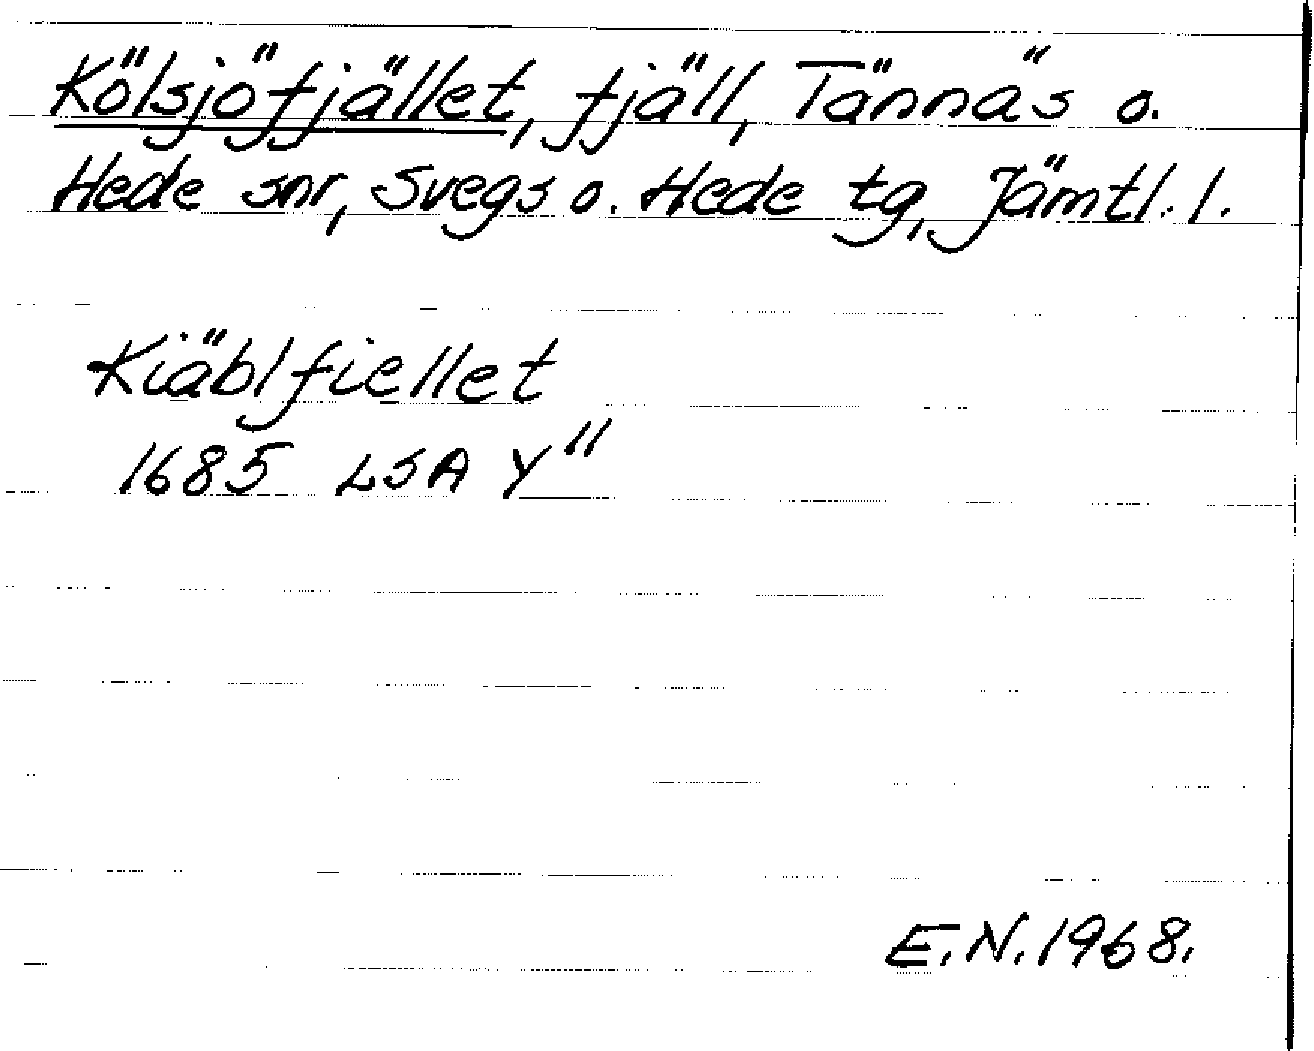 Kölsjöfjället, fjäll, Tännäs o.
Hede snr, Svegs o. Hede tg, Jämtl. l.
Kiäblfiellet
1685 LSA Y"
E.N. 1968.